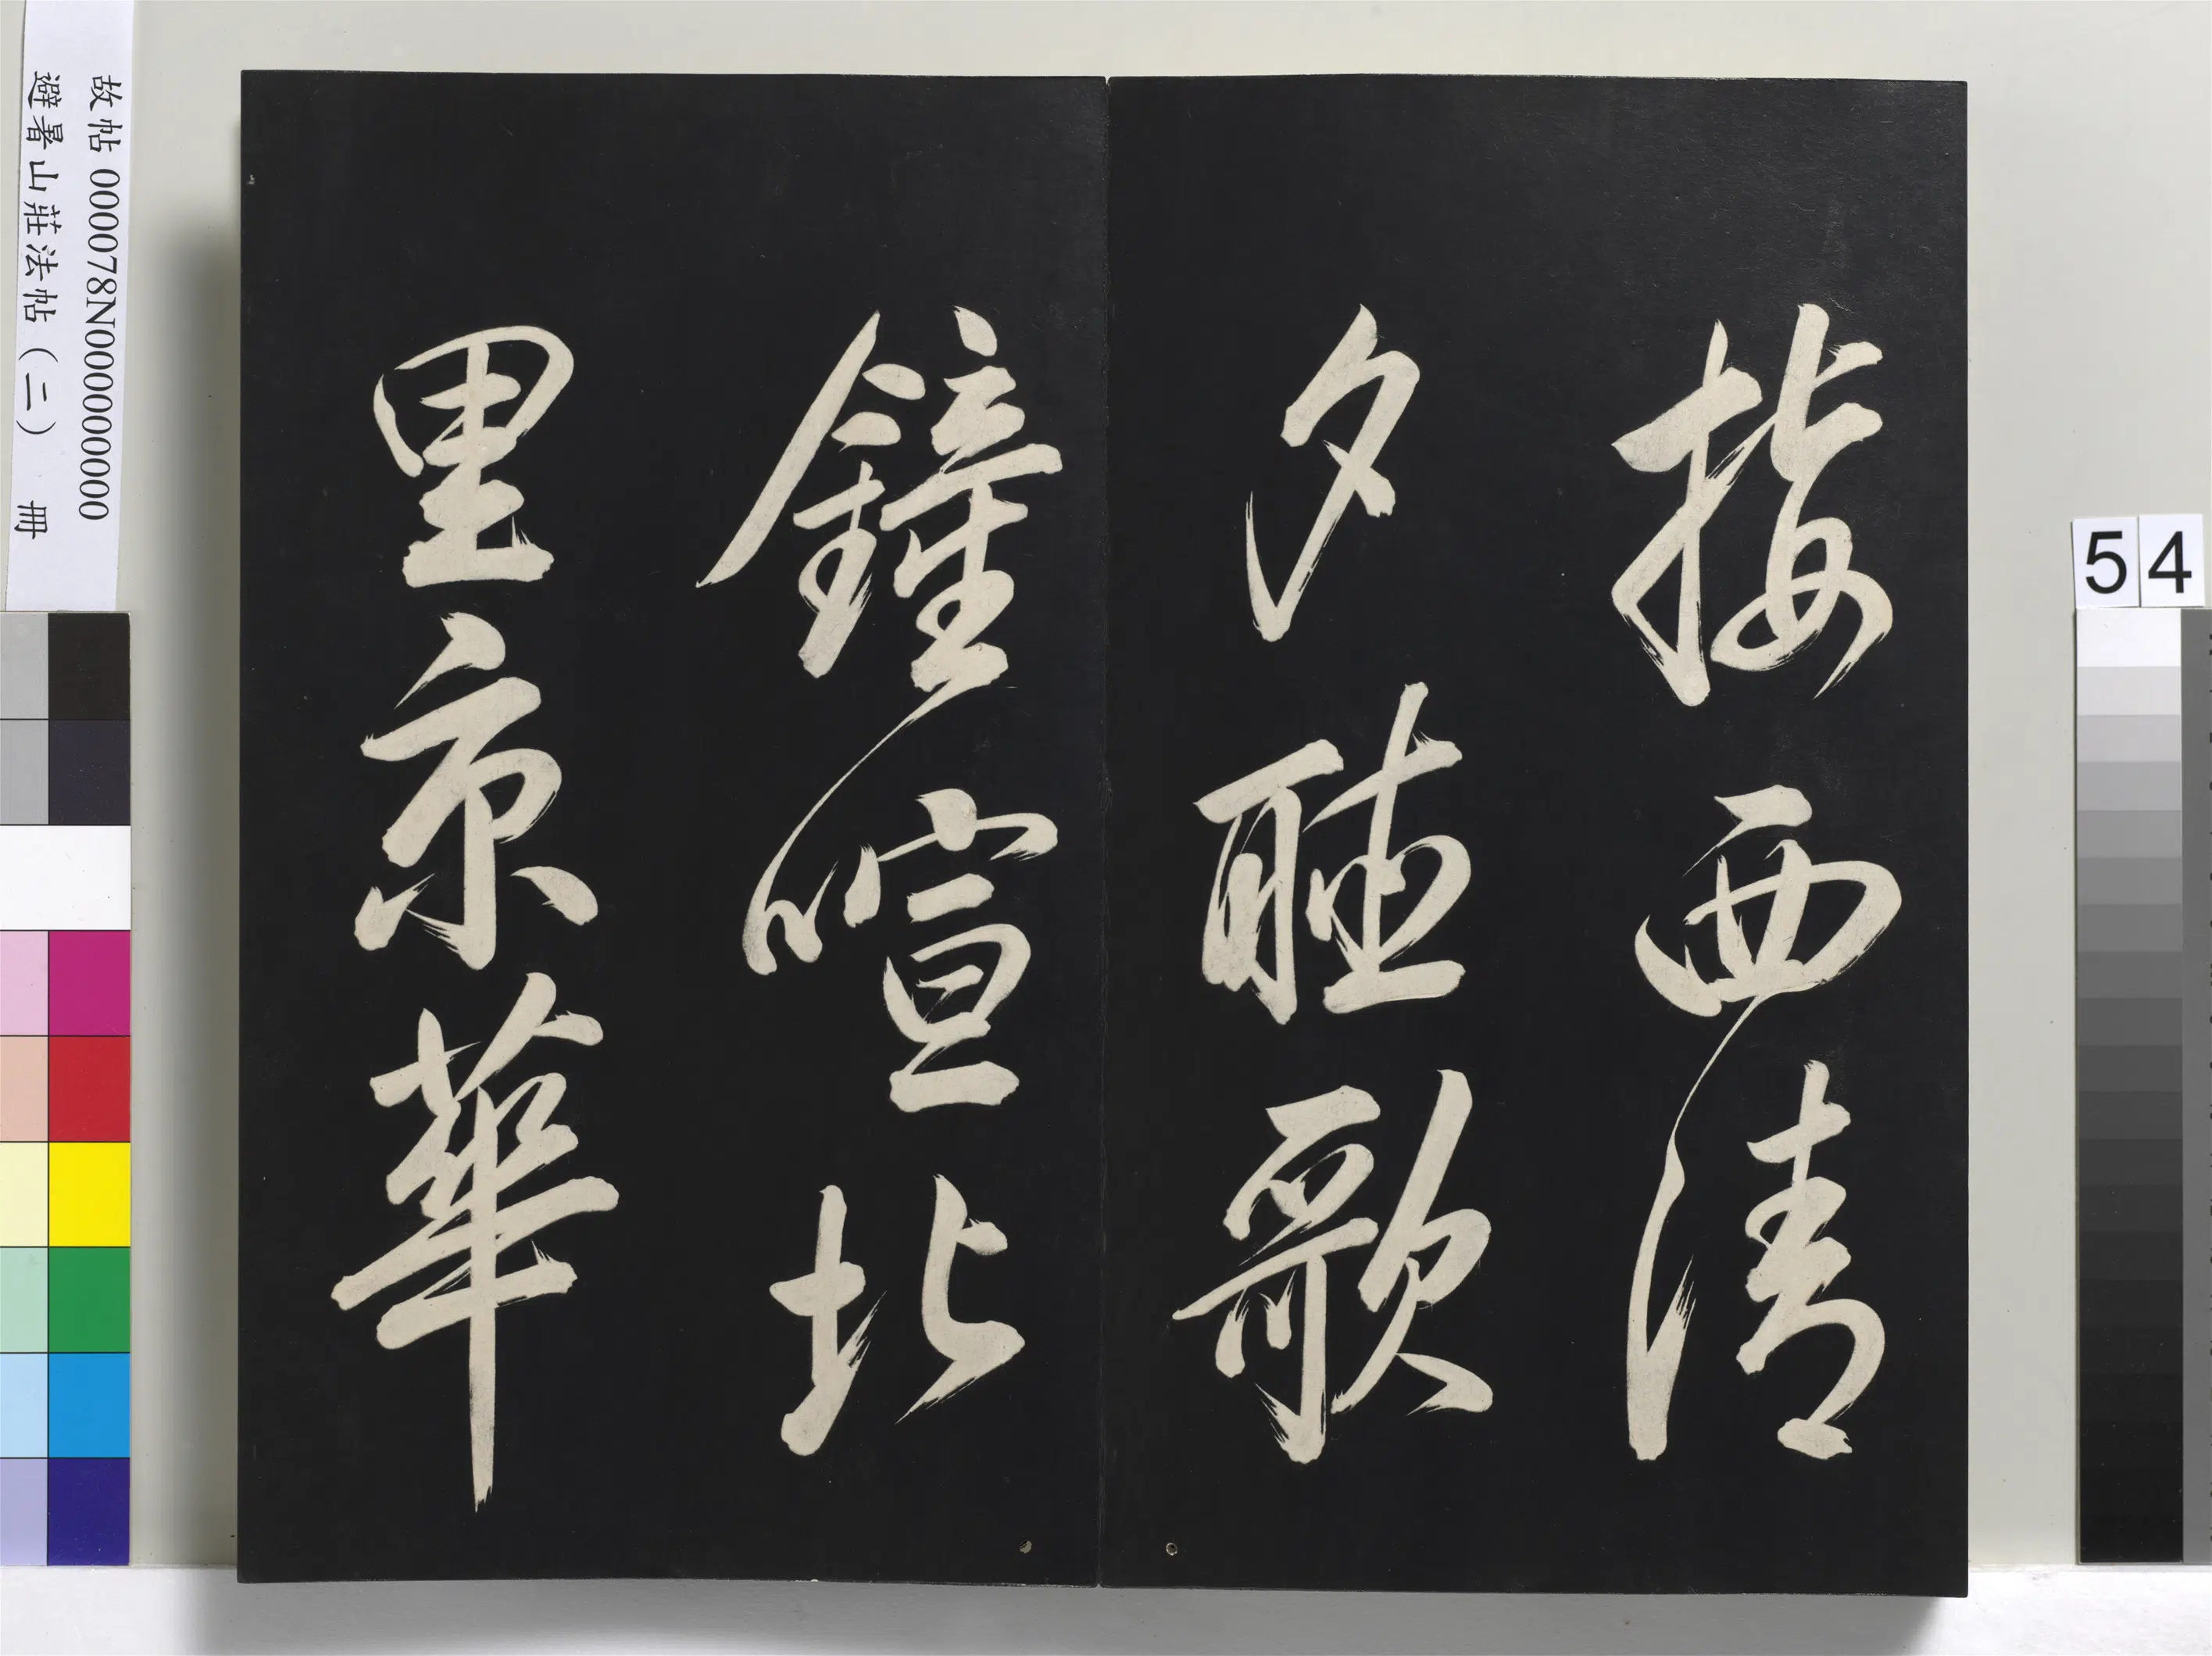 接西清
夕聽歌
鐘喧北
里京華
故帖 000078N000000000
避暑山莊法帖（二） 冊
54